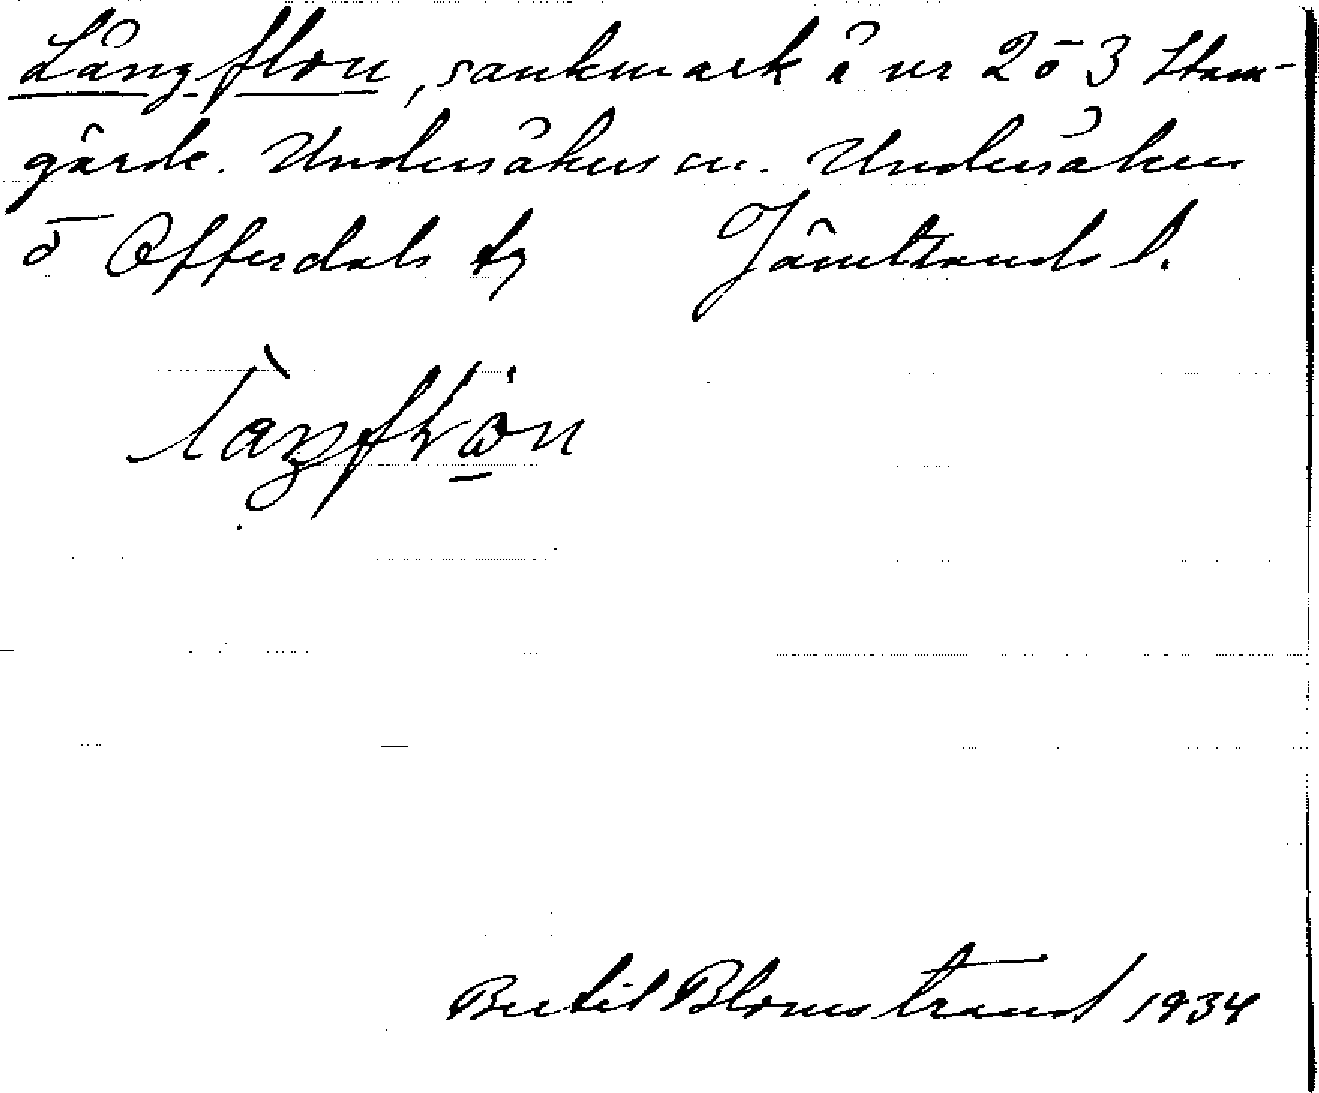 Långflon, sankmark å nr 2 o 3 Stam-
gärde. Undersåkers sn. Undersåkers
o Offerdals tg Jämtlands l.
Bertil Blomstrand 1934